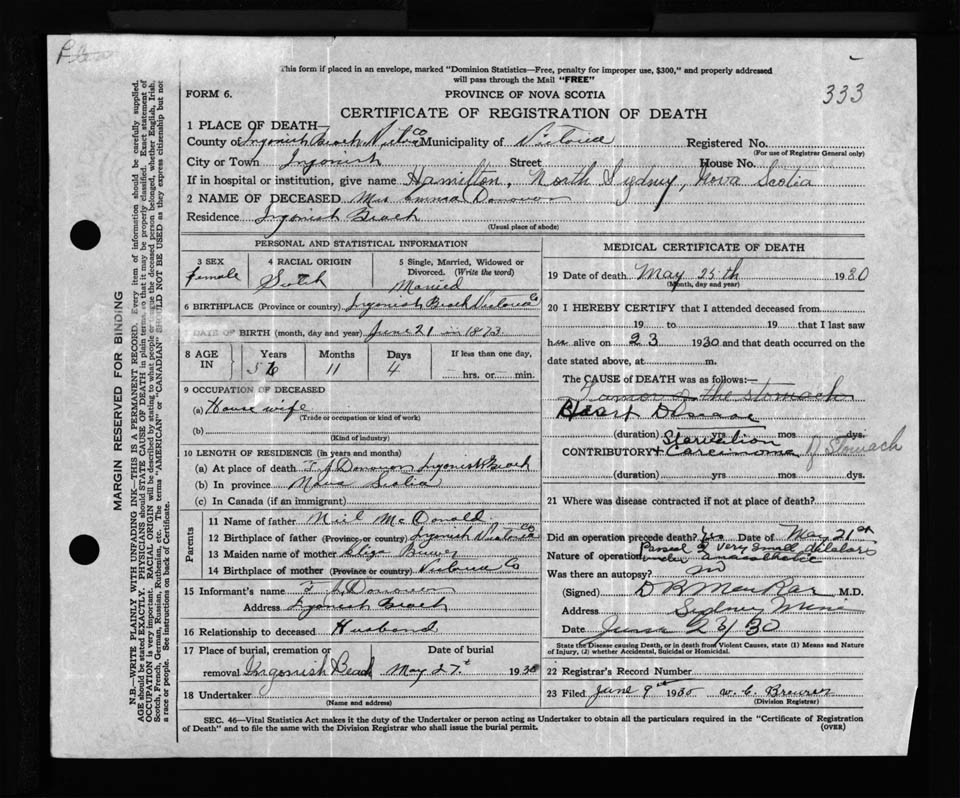 This form if placed in an envelope, marked "Dominion Statistics—Free, penalty for improper use, $300," and properly addressed
will pass through the Mail "FREE"
333
FORM 6.
PROVINCE OF NOVA SCOTIA
CERTIFICATE OF REGISTRATION OF DEATH
1 PLACE OF DEATH—
County of Ingonish Beach Victoria Co Municipality of Victoria Registered No.
(For use of Registrar General only)
City or Town Ingonish Street House No.
If in hospital or institution, give name Hamilton, North Sydney, Nova Scotia
2 NAME OF DECEASED Mrs Emma Donovan
Residence Ingonish Beach
(Usual place of abode)
PERSONAL AND STATISTICAL INFORMATION
3 SEX 4 RACIAL ORIGIN 5 Single, Married, Widowed or Divorced. (Write the word)
Female Scotch Married
6 BIRTHPLACE (Province or country) Ingonish Beach Victoria Co
7 DATE OF BIRTH (month, day and year) June 21 in 1873
8 AGE IN Years Months Days If less than one day,
56 11 4 hrs. or min.
9 OCCUPATION OF DECEASED
(a) House wife
(Trade or occupation or kind of work)
(b)
(Kind of industry)
10 LENGTH OF RESIDENCE (in years and months)
(a) At place of death Donovan Ingonish Beach
(b) In province Nova Scotia
(c) In Canada (if an immigrant)
Parents
11 Name of father Neil McDonald
12 Birthplace of father (Province or country) Ingonish Victoria Co
13 Maiden name of mother Eliza Brewer
14 Birthplace of mother (Province or country) Victoria Co
15 Informant's name J Donovan
Address Ingonish Beach
16 Relationship to deceased Husband
17 Place of burial, cremation or removal Date of burial
Ingonish Beach May 27th 1930
18 Undertaker
(Name and address)
MEDICAL CERTIFICATE OF DEATH
19 Date of death May 25th 1930
(Month, day and year)
20 I HEREBY CERTIFY that I attended deceased from
19 to 19 that I last saw
her alive on 23 1930 and that death occurred on the
date stated above, at m.
The CAUSE OF DEATH was as follows:—
Tumor in the stomach
Heart Disease
(duration) yrs mos dys.
Starvation
CONTRIBUTORY + Carcinoma of Stomach
(duration) yrs. mos. dys.
21 Where was disease contracted if not at place of death?
Did an operation precede death? Yes Date of May 21st
Nature of operation Passed a very small dilator under anaesthetic
Was there an autopsy? no
(Signed) M.D.
Address Sydney Mines
Date June 23/30
State the Disease causing Death, or in death from Violent Causes, state (1) Means and Nature of Injury, (2) whether Accidental, Suicidal or Homicidal.
22 Registrar's Record Number
23 Filed June 9th 1930 W. C. Brewer
(Division Registrar)
SEC. 46—Vital Statistics Act makes it the duty of the Undertaker or person acting as Undertaker to obtain all the particulars required in the "Certificate of Registration
of Death" and to file the same with the Division Registrar who shall issue the burial permit. (OVER)
MARGIN RESERVED FOR BINDING
N.B.—WRITE PLAINLY WITH UNFADING INK—THIS IS A PERMANENT RECORD. Every item of information should be carefully supplied.
AGE should be stated EXACTLY. PHYSICIANS should STATE CAUSE OF DEATH in plain terms so that it may be properly classified. Exact statement of
OCCUPATION is very important. RACIAL ORIGIN will be described by stating to what people or race the deceased person belonged, whether English, Irish,
Scotch, French, German, Russian, Ruthenian, etc. The terms "AMERICAN" or "CANADIAN" SHOULD NOT BE USED as they express citizenship but not
a race or people. See instructions on back of Certificate.